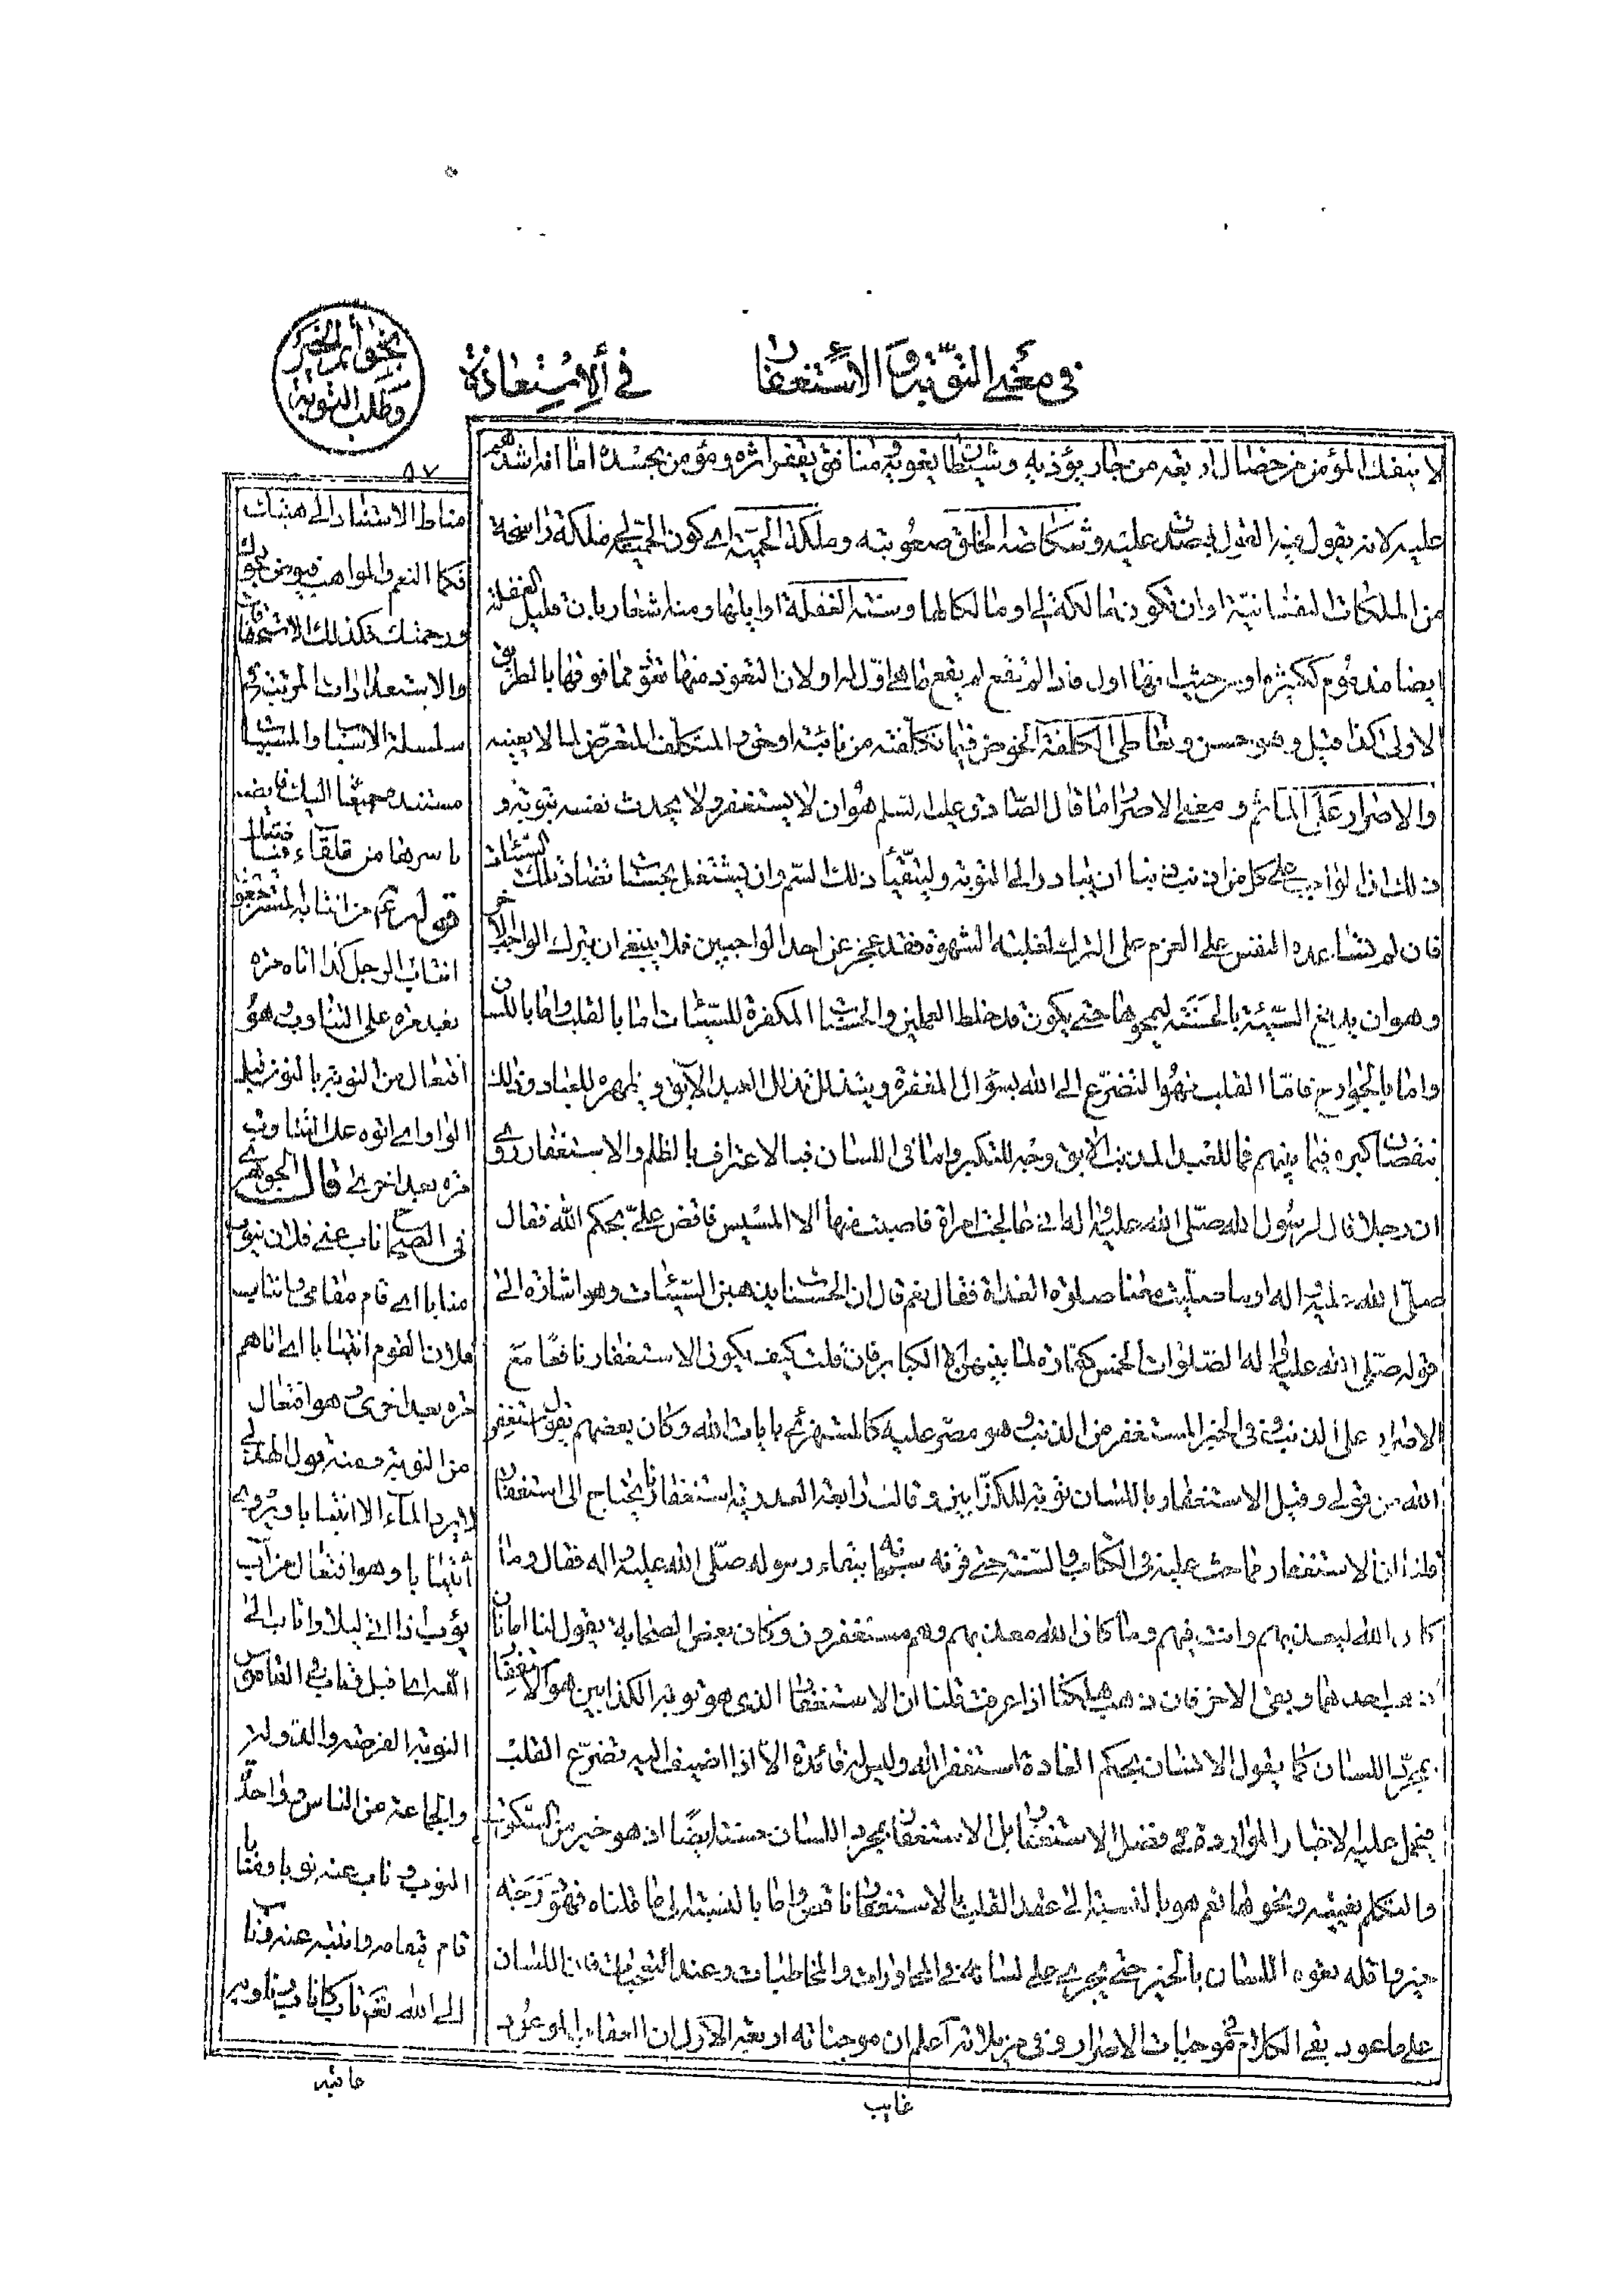 في معنى التوبة والاستغفار
في الاستعاذة
بخواتم الخير
وطلب التوبة
٨٧
لا ينفك المؤمن من خصال اربعة من جار يؤذيه وشيطان يغويه منافق يقفر اثره ومؤمن يحسده اما انه اشدهم
عليه لانه يقول فيه القول فيصدق عليه وشكاضة الخلق صعوبته وملكة الحمية اي كون الحمية لي ملكة راسخة
من الملكات النفسانية او ان تكون مالكة لي او مالكا لها وسنة الغفلة اوايلها ومنه اشعار بان قليل الغفلة
ايضا مذموم ككثيره او من حيث انها اول فاذا لم تقع لم يقع ما هي اول له او لان التعوذ منها تعوذ مما فوقها بالطريق
الاولى كذا قيل وهو حسن وتعاطى الكلفة الخوض فيما تكلفته من نائبة او حق والمتكلف المتعرض لما لا يعنيه
والاصرار على المأثم ومعنى الاصرار ما قال الصادق عليه السلم هو ان لا يستغفر ولا يحدث نفسه بتوبة و
ذلك اذ الواجب على كل من اذنب ذنبا ان يبادر الى التوبة وليتقيأ ذلك السم وان يشتغل بحسنات تضاد تلك السيئات
فان لم تساعده النفس على العزم على الترك لغلبة الشهوة فقد عجز عن احد الواجبين فلا ينبغي ان يترك الواجب الاخر
وهو ان يدفع السيئة بالحسنة ليمحوها حتى يكون قد خلط العملين والحسنات المكفرة للسيئات اما بالقلب واما باللسان
واما بالجوارح فاما القلب فهو التضرع الى الله بسؤال المغفرة ويتذلل تذلل العبد الآبق ويظهره للعباد وذلك
بنقصان كبره فيما بينهم فما للعبد المذنب الآبق وجه للتكبر واما في اللسان فبالاعتراف بالظلم والاستغفار روى
ان رجلا قال لرسول الله صلى الله عليه واله اني عالجت امراة فاصبت منها الا المسيس فاقض علي بحكم الله فقال
صلى الله عليه واله اوما صليت معنا صلوة الغداة فقال نعم قال ان الحسنات يذهبن السيئات وهو اشارة الى
قوله صلى الله عليه واله الصلوات الخمس كفارة لما بينهن الا الكبائر فان قلت كيف يكون الاستغفار نافعا مع
الاصرار على الذنب وفي الخبر المستغفر من الذنب وهو مصر عليه كالمستهزئ بايات الله وكان بعضهم يقول استغفر
الله من قولي وقيل الاستغفار باللسان توبة الكذابين وقالت رابعة العدوية استغفارنا يحتاج الى استغفار
قلنا ان الاستغفار مما حث عليه في الكتاب والسنة حتى قرنه سبحانه ببقاء رسوله صلى الله عليه واله فقال وما
كان الله ليعذبهم وانت فيهم وما كان الله معذبهم وهم يستغفرون وكان بعض الصحابة يقول لنا امانان
ذهب احدهما وبقى الاخر فان ذهب هلكنا اذا عرفت قلنا ان الاستغفار الذى هو توبة الكذابين هو الاستغفار
بمجرد اللسان كما يقول الانسان بحكم العادة استغفر الله وليس له فائدة الا اذا اضيف اليه تضرع القلب
فيحمل عليه الاخبار الواردة في فضل الاستغفار بل الاستغفار بمجرد اللسان حسنة ايضا اذ هو خير من السكوت
والتكلم بغيبة ونحوهما نعم هو بالنسبة الى عقد القلب بالاستغفار ناقص واما بالنسبة الى ما قلناه فهو درجة
خير واقله تعود اللسان بالخير حتى يجري على لسانه في المحاورات والمخاطبات وعند التعجبات فان اللسان
على ما عود بقى الكلام في موجبات الاصرار وفي مزيلاته اعلم ان موجباته اربعة الاول ان العقاب الموعود
غايب
مناط الاستناد الى هيبتك
فكما النعم والمواهب فيوض بجودك
ورحمتك فكذلك الاستحقاقات
والاستعدادات المرتبة في
سلسلة الاسباب والمسببات
مستندة جميعها اليك فايضة
باسرها من تلقاء فيضك
قوله ثم من انتابه المسترجعون
انتاب الرجل كذا اتاه مرة
بعد مرة على التناوب وهو
افتعال من النوبة بالنون قبل
الواو اي اتوه على التناوب
مرة بعد اخرى قال الجوهري
في الصحاح ناب عني فلان ينوب
منابا اي قام مقامي وانتاب
فلان القوم انتيابا اي اتاهم
مرة بعد اخرى وهو افتعال
من النوبة ومنه قول الهذلي
لا يرد الماء الا انتيابا ويروى
ائتيابا وهو افتعال من آب
يؤب اذا اتى ليلا واناب الى
الله اي اقبل وتاب في القاموس
النوبة الفرصة والدولة
والجماعة من الناس وواحدة
النوب وناب عنه نوبا ومنابا
قام مقامه وانبته عنه وناب
الى الله تعم تاب كاناب وناوبه
حاشيه